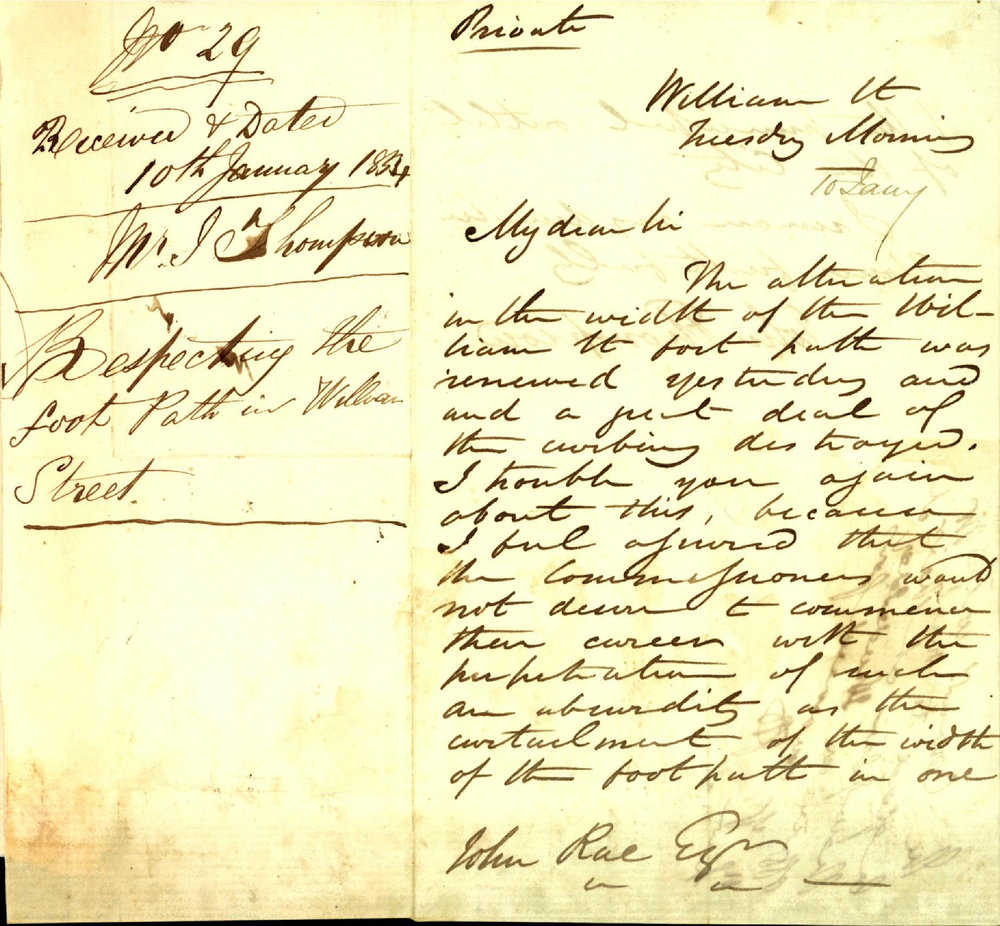 No 29
Received & Dated
10th January 1854
Mr. J Thompson
Respecting the
foot Path in William
Street.
Private
William St
Tuesday Morning
10 Jany
My dear Sir
The alteration
in the width of the Wil-
liam St foot path was
renewed yesterday and
and a great deal of
the curbing destroyed.
I trouble you again
about this, because
I feel assured that
the Commissioners would
not desire to commence
their career with the
perpetration of such
an absurdity as the
curtailment of the width
of the foot path in one
John Rae Esqr